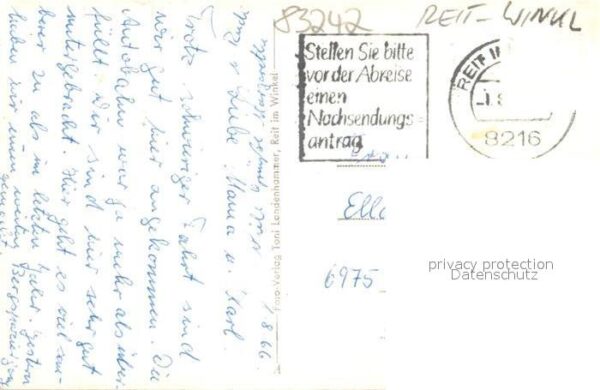 83242 REIT-WINKL
Stellen Sie bitte
vor der Abreise
einen
Nachsendungs
antrag
REIT IM
8216
Elle
6975
privacy protection
Datenschutz
Foto-Verlag Toni Landenhammer, Reit im Winkel
1.8.66.
Liebe Mama u. Karl.
Trotz schwieriger Fahrt sind
wir gut hier angekommen. Die
Autobahn war ja mehr als über
füllt. Wir sind hier sehr gut
untergebracht. Hier geht es viel
als im letzten Jahr. Gestern
haben wir einen weiten Bergspaziergang
gemacht.